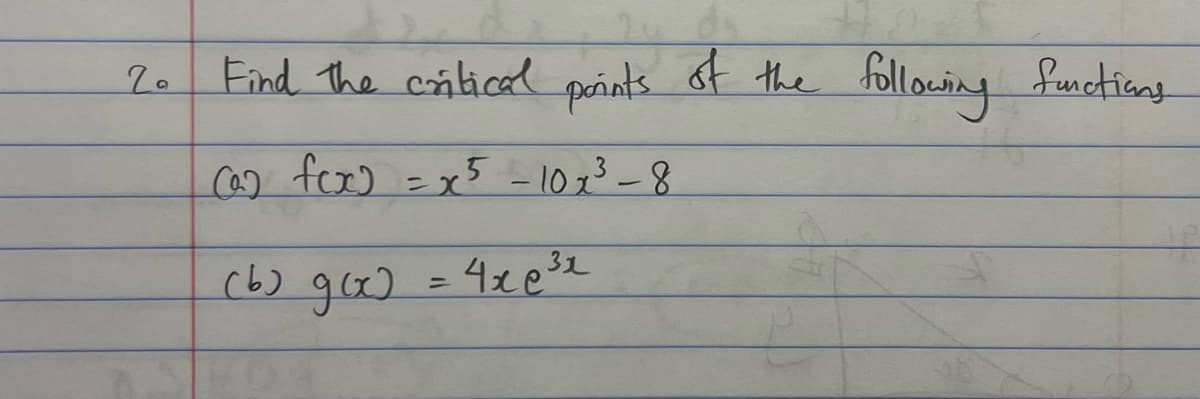 2. Find the critical points of the following functions
(a) f(x) = x⁵ - 10x³ - 8
(b) g(x) = 4xe³ˣ